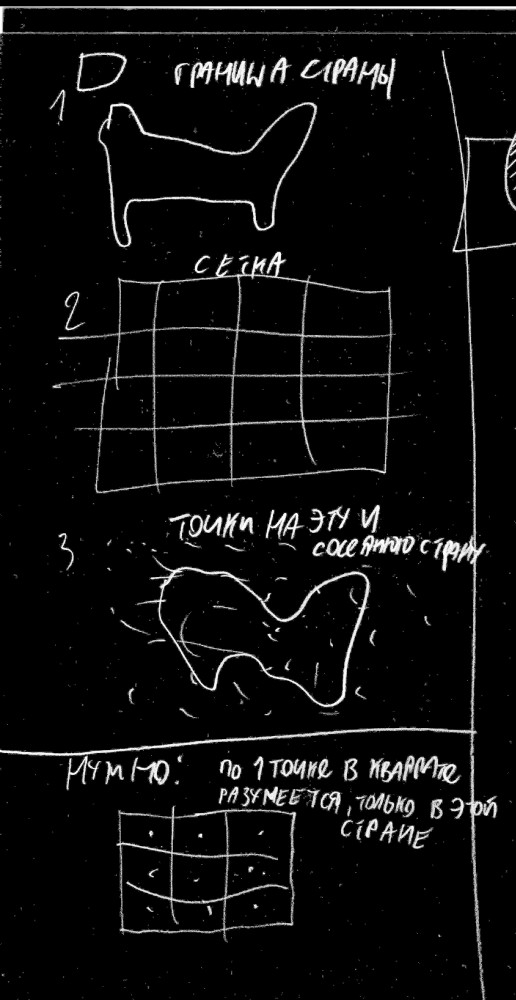 ГРАНИЦА СТРАНЫ
1
СЕТКА
2
ТОЧКИ НА ЭТУ И
СОСЕДНЮЮ СТРАНУ
3
НУЖНО:
ПО 1 ТОЧКЕ В КВАДРАТЕ
РАЗУМЕЕТСЯ, ТОЛЬКО В ЭТОЙ
СТРАНЕ